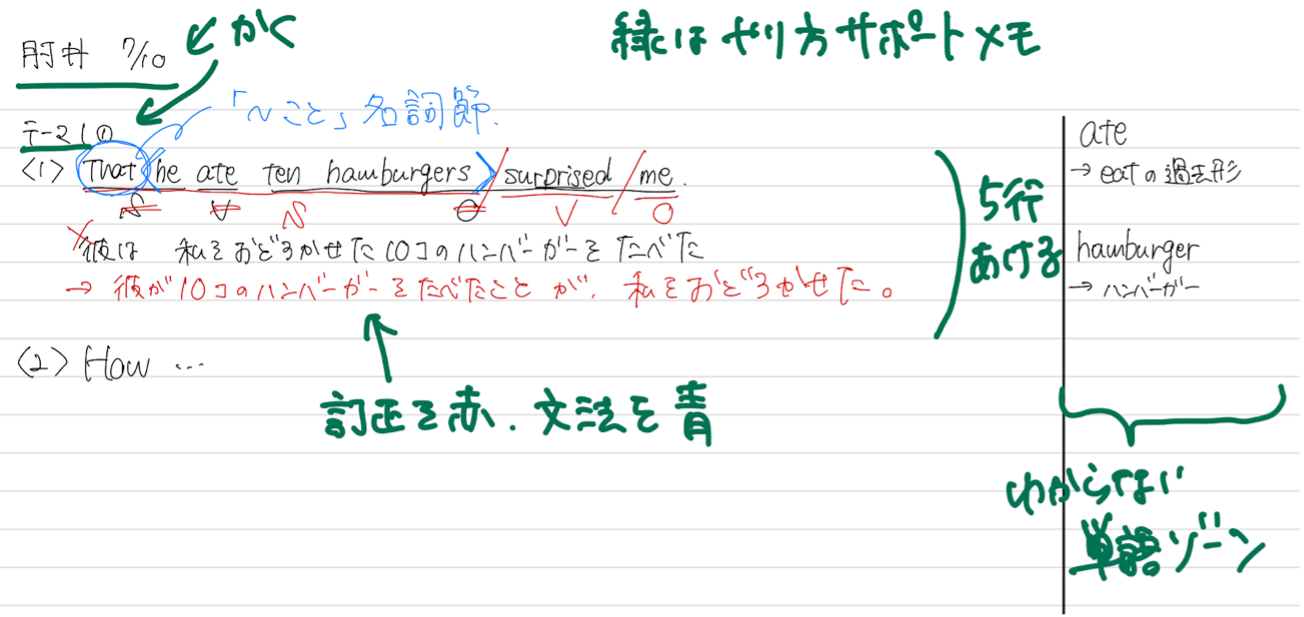 肘井 7/10
かく
緑は やり方サポートメモ
「〜こと」名詞節.
テーマ1①
<1> That he ate ten hamburgers / surprised / me.
S V S O V O
彼は 私をおどろかせた10コのハンバーガーをたべた
→ 彼が10コのハンバーガーをたべたこと が、私をおどろかせた。
5行
あける
<2> How …
訂正を赤. 文法を青
ate
→ eatの過去形
hamburger
→ ハンバーガー
わからない
単語ゾーン